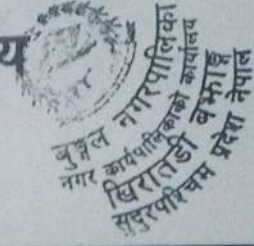 य
बुङ्गल नगरपालिका
नगर कार्यपालिकाको कार्यालय
खिरातडी बझाङ
सुदुरपश्चिम प्रदेश नेपाल